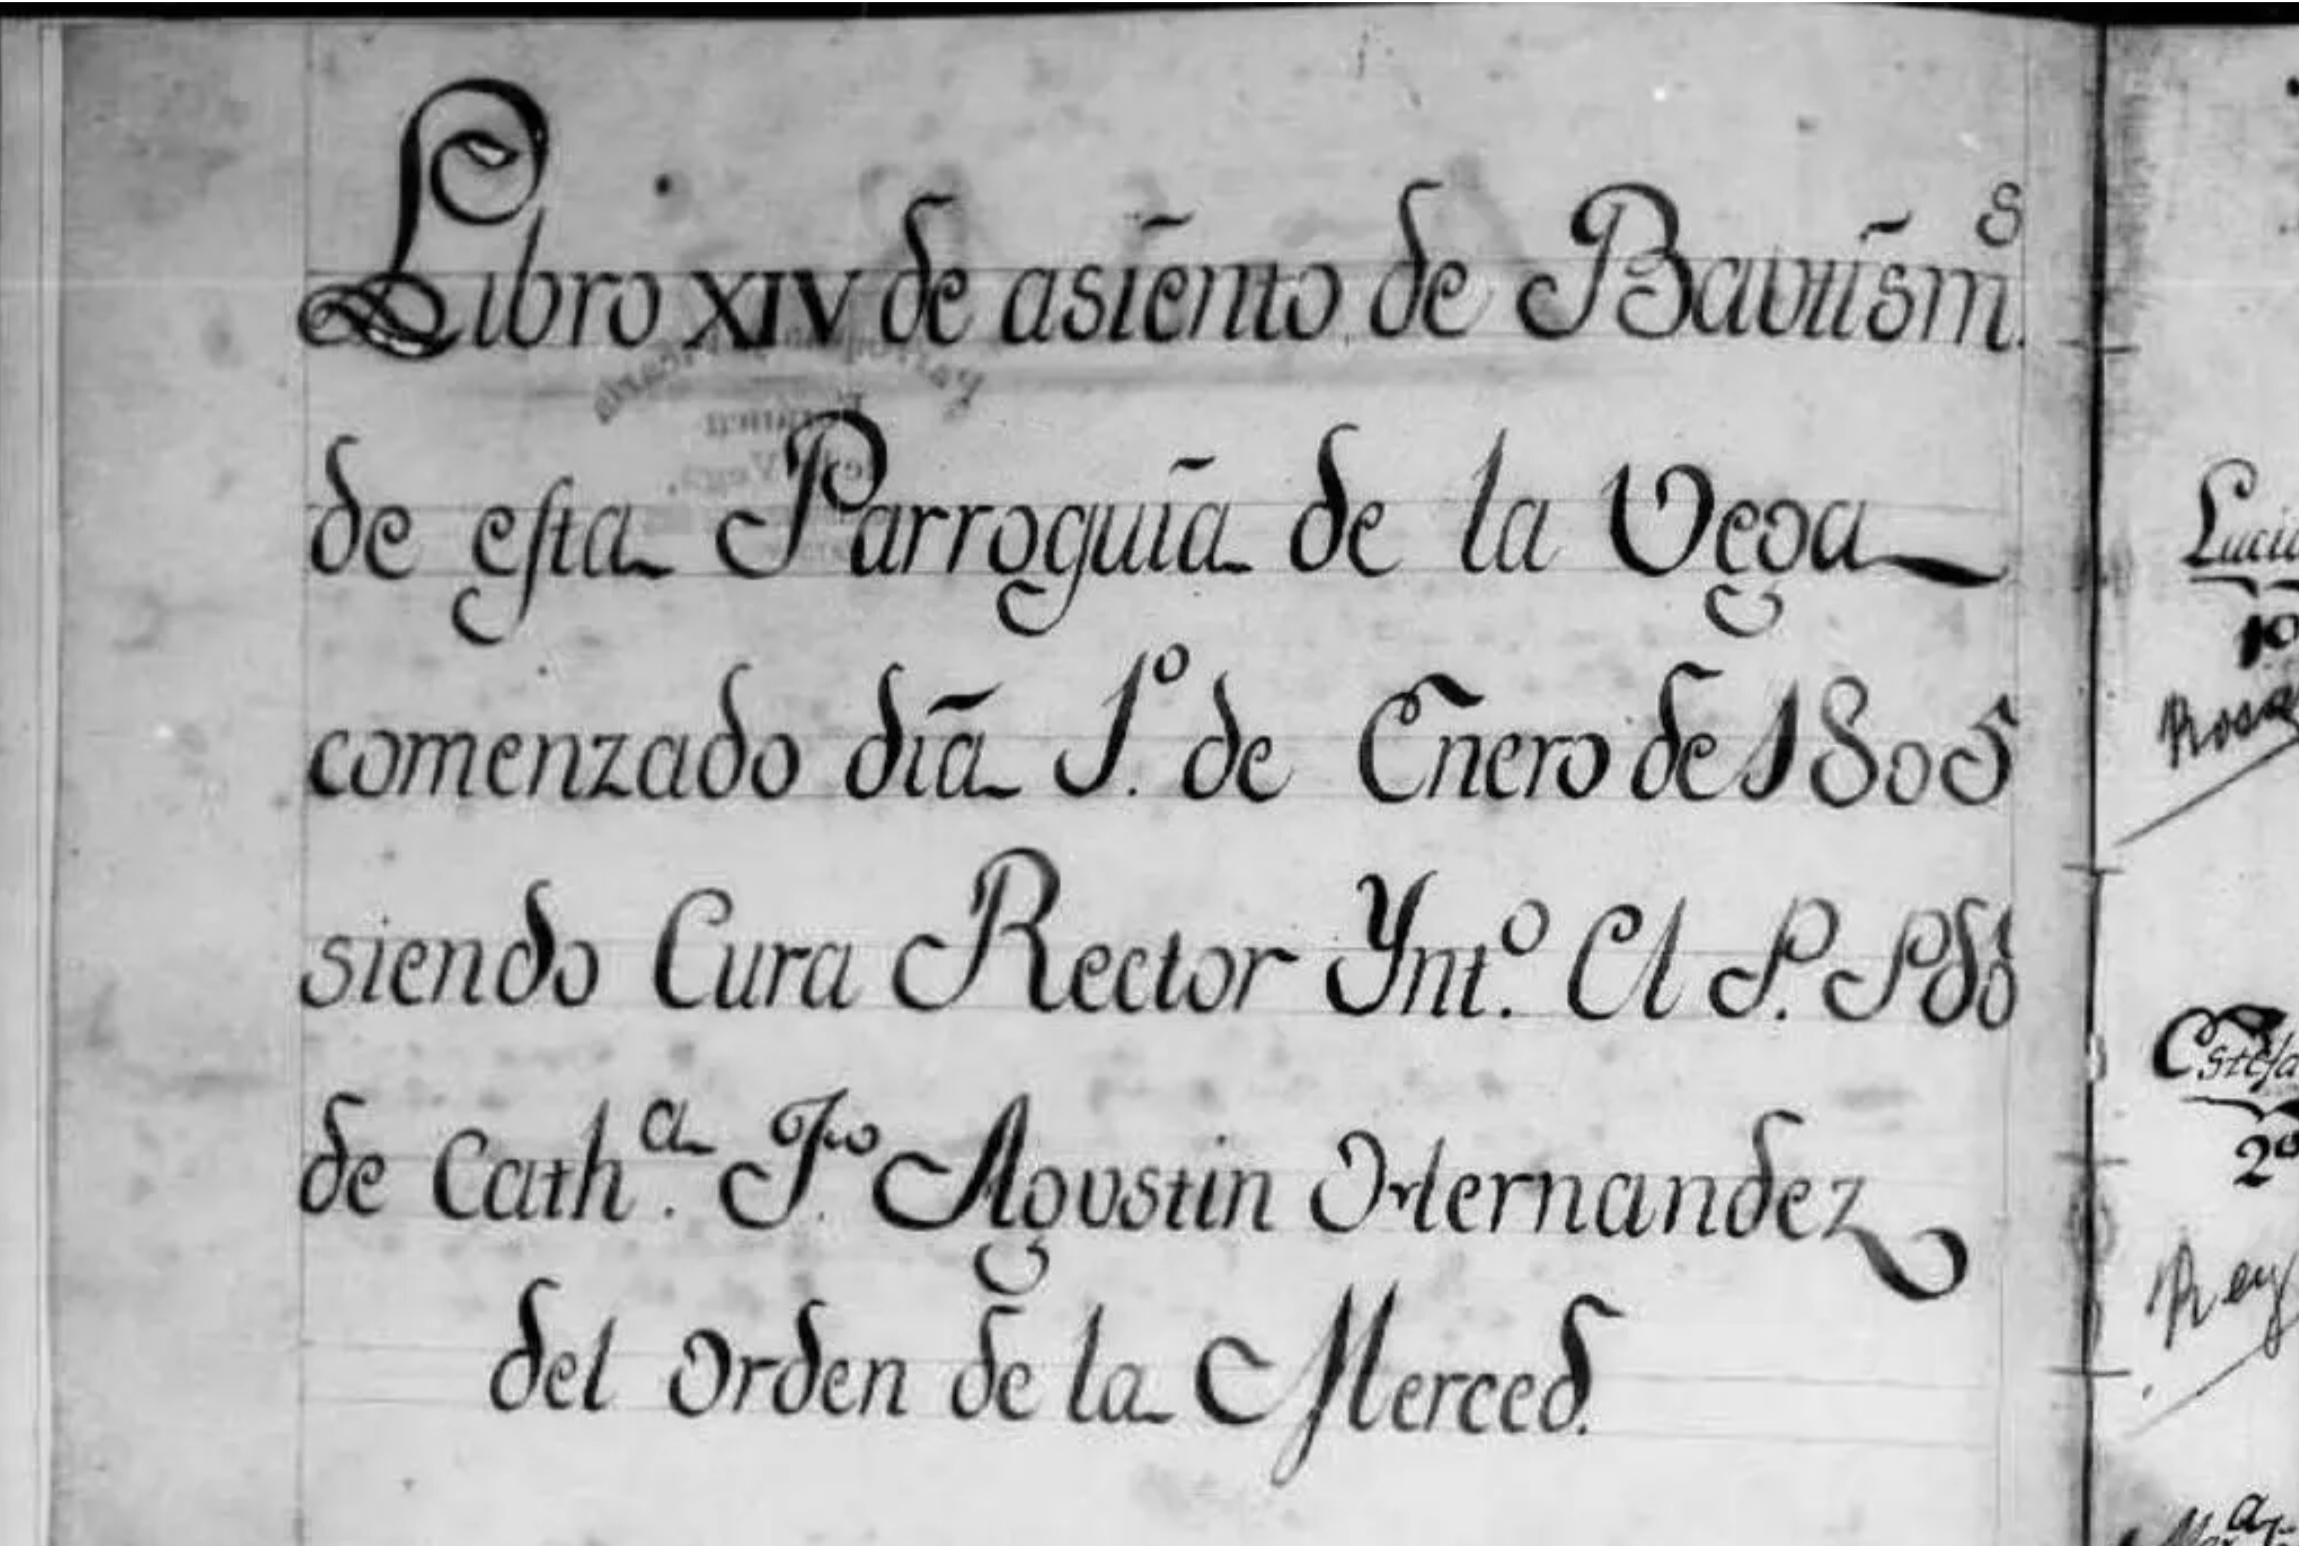 Libro XIV de asiento de Bautism.s
de esta Parroquia de la Vega
comenzado dia 1.º de Enero de 1805
siendo Cura Rector Ynt.º El P. Pdº
de Cath.a F.co Agustin Hernandez
del Orden de la Merced.
Lucia
1º
Rosa
2º
Rey